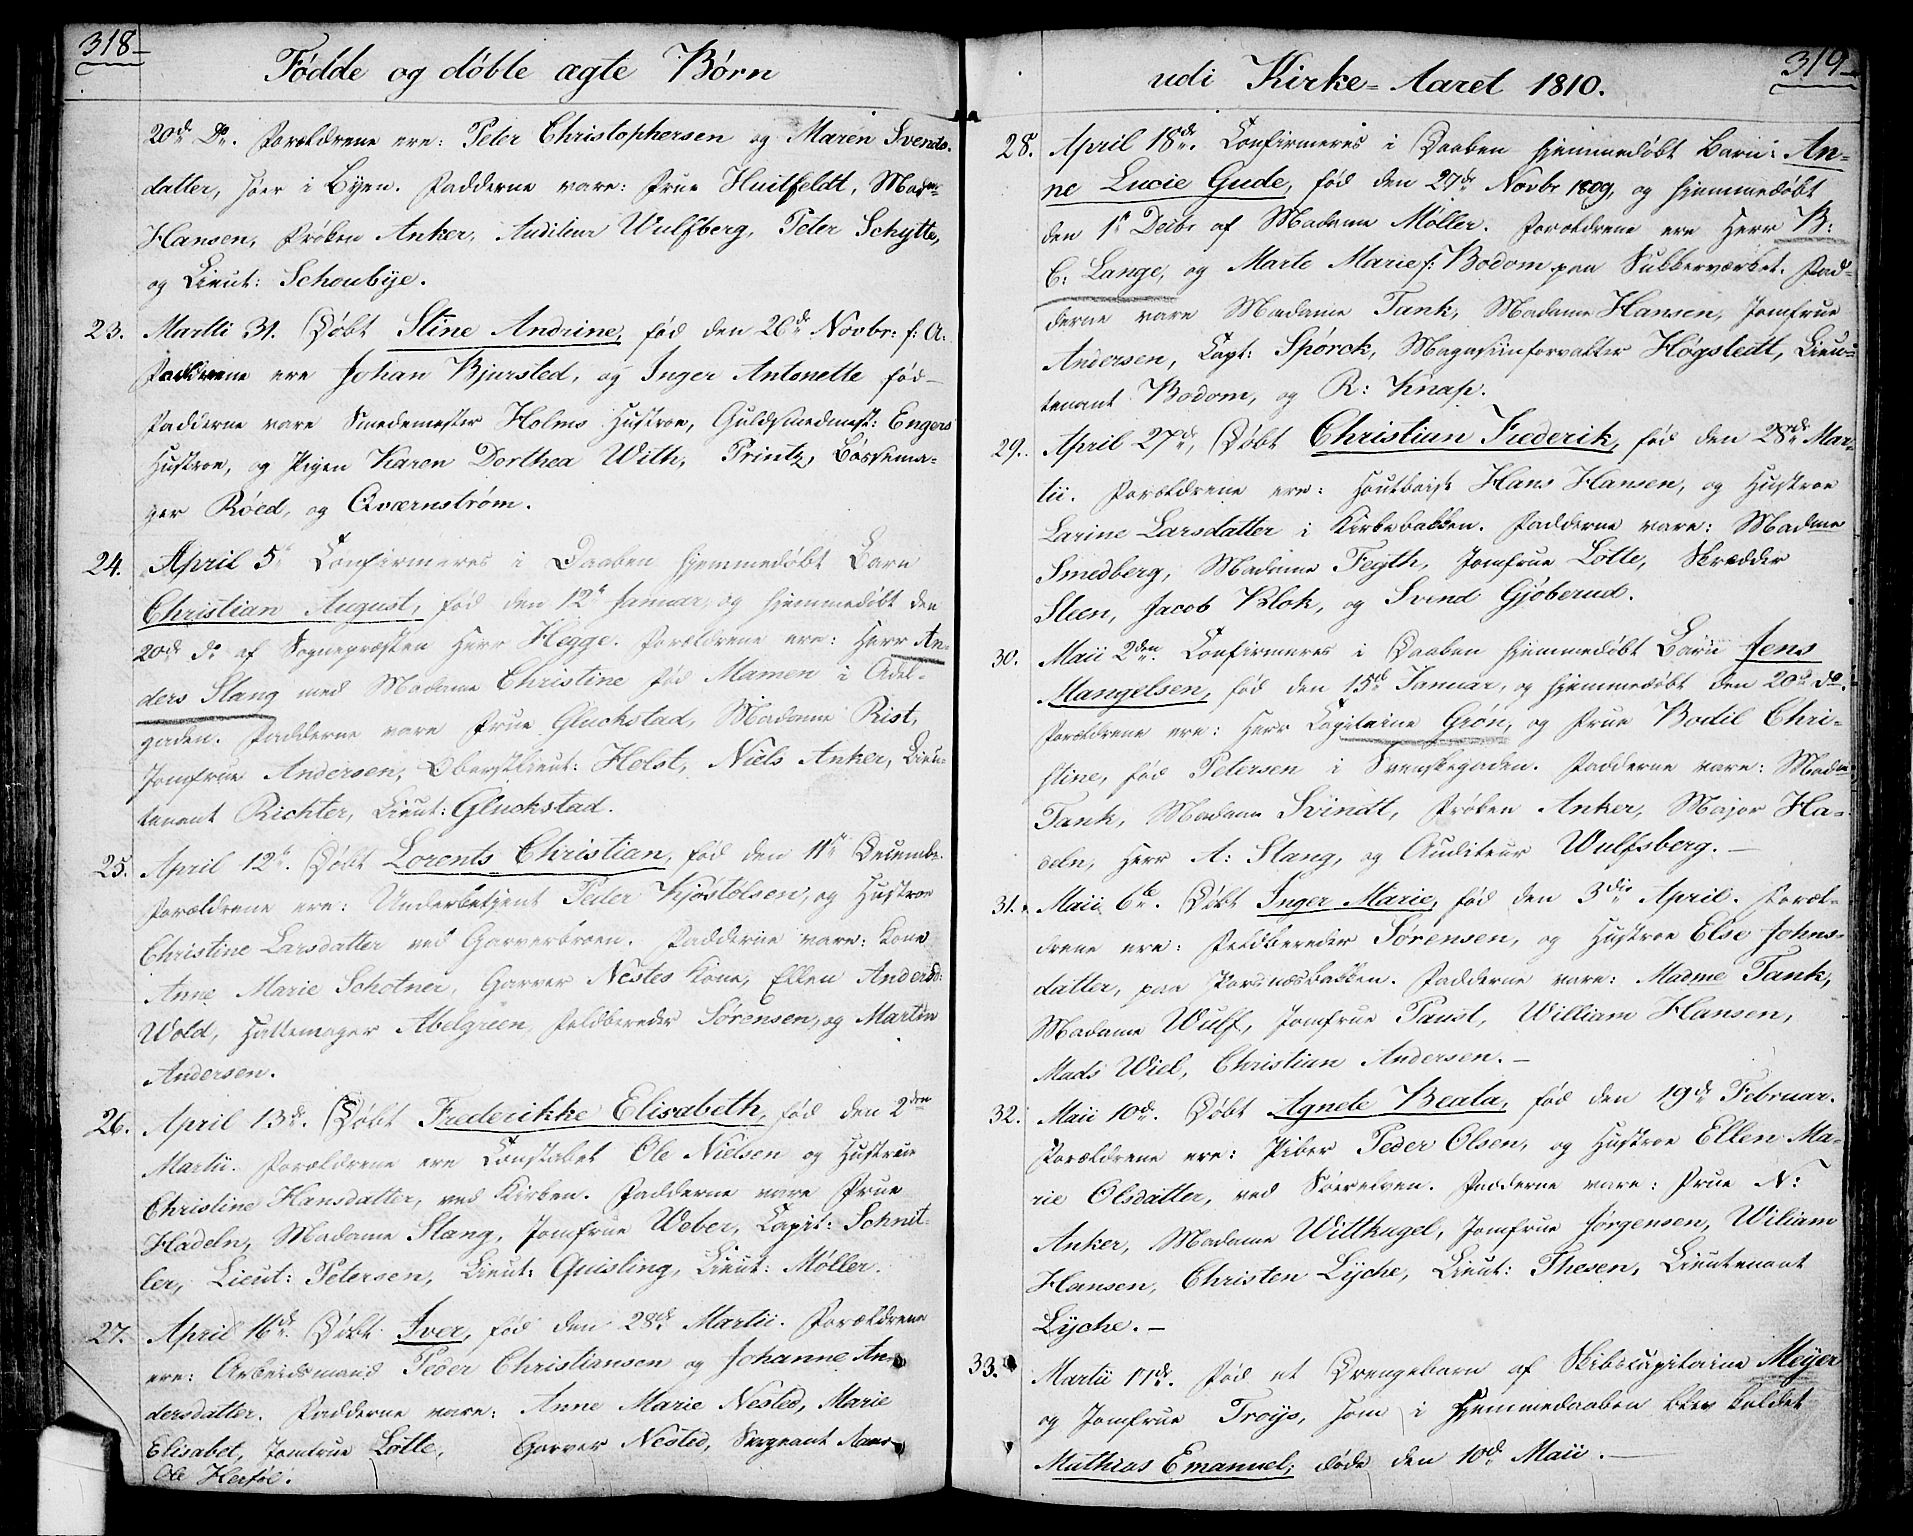 318
Fødde og døbte ægte Børn
20de Do. Forældrene ere: Peter Christophersen og Maren Svends-
datter, her i Byen. Fadderne vare: Frue Huitfeldt, Madme
Hansen, Frøken Anker, Auditeur Wulfberg, Peter Schytte,
og Lieut: Schoubye.
23. Martii 31. Døbt Stine Andrine, fød den 26de Novbr: f: A.
Forældrene ere Johan Bjursted, og Inger Antonette fød-
Fadderne vare Smedemester Holms Hustroe, Guldsmedmest: Engers
Hustroe, og Pigen Karen Dorthea With, Printz, Bøssema-
ger Røed, og Qværnstrøm.
24. April 5te Confirmeres i Daaben hjemmedøbt Barn
Christian August, fød den 12te Januar, og hjemmedøbt den
20de do af Sognepræsten Herr Hegge. Forældrene ere: Herr An-
ders Stang med Madame Christine fød Mamen i Adel-
gaden. Fadderne vare Frue Gluckstad, Madame Rist,
Jomfrue Andersen, Oberstlieut: Holst, Niels Anker, Lieu-
tenant Richter, Lieut: Gluckstad.
25. April 12te. Døbt Lorents Christian, fød den 11te Decembr.
Forældrene ere: Underbetjent Peder Kjøstolsen, og Hustroe
Christine Larsdatter ved Garverbroen. Fadderne vare: Kone
Anne Marie Schotner, Garver Nestes Kone, Ellen Andersd:
Wold, Hattemager Abelgreen, Feldbereder Sørensen, og Martin
Andersen.
26. April 13de. Døbt Frederikke Elisabeth, fød den 2den
Martii. Forældrene ere Constabel Ole Nielsen og Hustrue
Christine Hansdatter, ved Kirken. Fadderne vare Frue
Hadeln, Madame Stang, Jomfrue Weber, Capit: Schnit-
ler, Lieut: Petersen, Lieut: Quisling, Lieut: Møller.
27. April 16de. Døbt Iver, fød den 28de Martii. Forældrene
ere: Arbeidsmand Peder Christiansen og Johanne An-
dersdatter. Fadderne vare: Anne Marie Nested, Marie
Elisabet, Jomfrue Lotte, Garver Nested, Sergeant
Ole Herføl.
319
udi Kirke-Aaret 1810.
28. April 18de. Confirmeres i Daaben hjemmedøbt Barn: An-
ne Lucie Gude, fød den 27de Novbr 1809, og hjemmedøbt
den 1te Decbr af Madame Møller. Forældrene ere Herr B:
C: Lange, og Marte Marie f: Bodom paa Sukkerværket. Fad-
derne vare Madame Tank, Madame Hansen, Jomfrue
Andersen, Capt: Spørck, Magasiinforvalter Høgstedt, Lieu-
tenant Bodom, og R: Knap.
29. April 27de, Døbt Christian Frederik, fød den 28de Mar-
tii. Forældrene ere: Houtboist Hans Hansen, og Hustroe
Larine Larsdatter i Kirkebakken. Fadderne vare: Madme
Smedberg, Madame Feyth, Jomfrue Lotte, Skrædder
Steen, Jacob Klok, og Svend Gjøberud.
30. Maii 2den. Confirmeres i Daaben hjemmedøbt Barn Jens
Mangelsen, fød den 15de Januar, og hjemmedøbt den 20de do.
Forældrene ere: Herr Capitaine Grøn, og Frue Bodil Chri-
stine, fød Petersen i Svenskegaden. Fadderne vare: Madm
Tank, Madame Svindt, Frøken Anker, Major Ha-
deln, Herr A: Stang, og Auditeur Wulfsberg.—
31. Maii 6te. Døbt Inger Marie, fød den 3die April. Foræl-
drene ere: Feldbereder Sørensen, og Hustroe Else Johns-
datter, paa Porsnæsbakken. Fadderne vare: Madme Tank,
Madame Wulf, Jomfrue Faust, William Hansen,
Mads Wiel, Christian Andersen.—
32. Maii 10de. Døbt Agnete Beata, fød den 19de Februar.
Forældrene ere: Piber Peder Olsen, og Hustroe Ellen Ma-
rie Olsdatter, ved Fadderne vare: Frue N:
Anker, Madame Witthugel, Jomfrue Jørgensen, Wiliam
Hansen, Christen Lyche, Lieut: Thesen, Lieutenant
Lyche.—
33. Martii 17de. Fød et Drengebarn af Skibscapitaine Meyer
og Jomfrue Troys, som i Hjemmedaaben blev kaldet
Mathias Emanuel; døde den 10de Maii.—